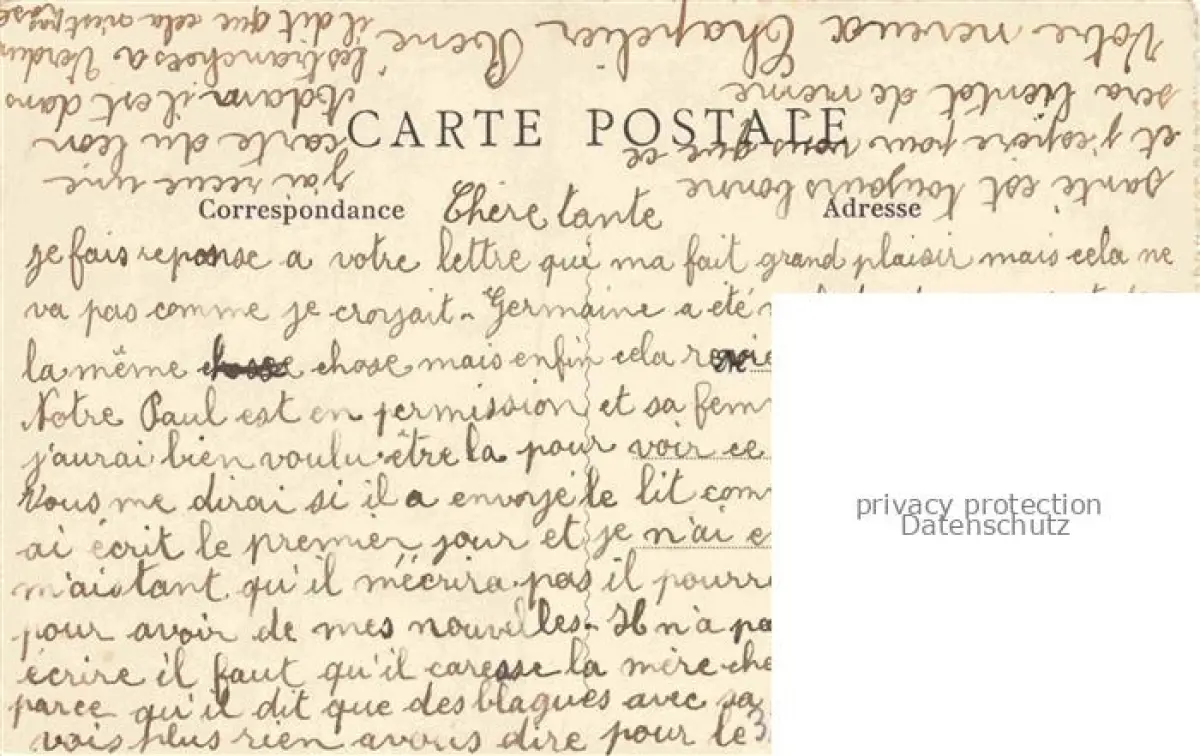 CARTE POSTALE
Correspondance
Adresse
Chère tante
je fais reponse a votre lettre qui ma fait grand plaisir mais cela ne
va pas comme je croyait. Germaine a été
la même chose mais enfin cela
Notre Paul est en permission et sa fem
j'aurai bien voulu être la pour voir ce
Vous me dirai si il a envoyé le lit com
ai écrit le premier jour et je n'ai e
mais tant qu'il m'écrira pas il pourr
pour avoir de mes nouvelles. Il n'a pa
écrire il faut qu'il caresse la mère che
parce qu'il dit que des blagues avec sa
vois plus rien avous dire pour le
santé est toujours bonne
et j'espère pour vous que ce
sera bientot de meme
Votre neveux Chapelier René
j'ai recue une
carte du leon
Adam il est dans
les tranchées a Verdun
il dit que cela n'est pas rose
privacy protection
Datenschutz